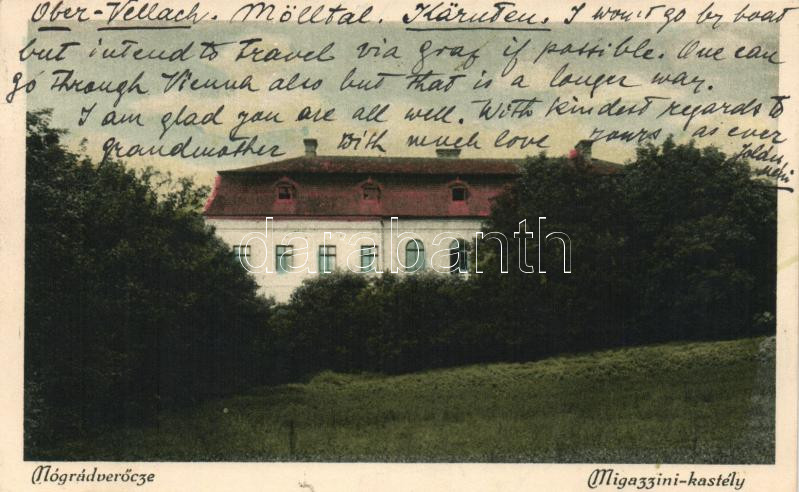 Ober-Vellach. Mölltal. Kärnten. I won't go by boat
but intend to travel via graf if possible. One can
go through Vienna also but that is a longer way.
I am glad you are all well. With kindest regards to
grandmother With much love yours as ever
darabanth
Nógrádverőcze
Migazzini-kastély